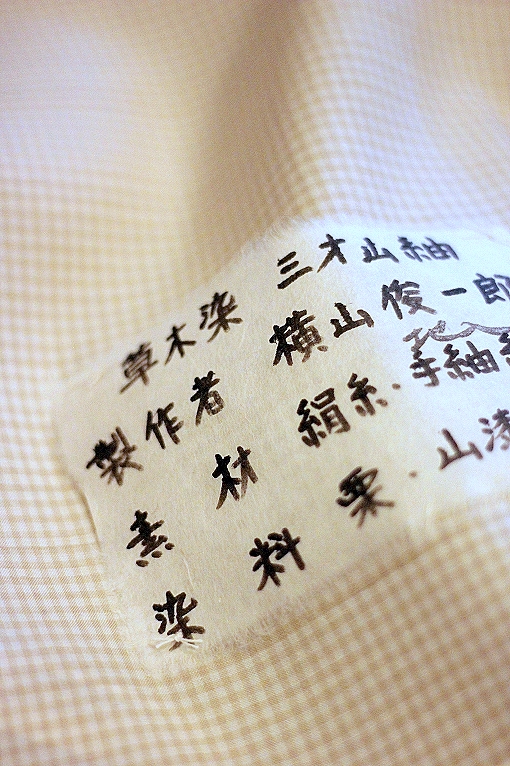 草木染 三才山紬
製作者 横山俊一郎
素材 絹糸・手紬
染料 栗・山漆